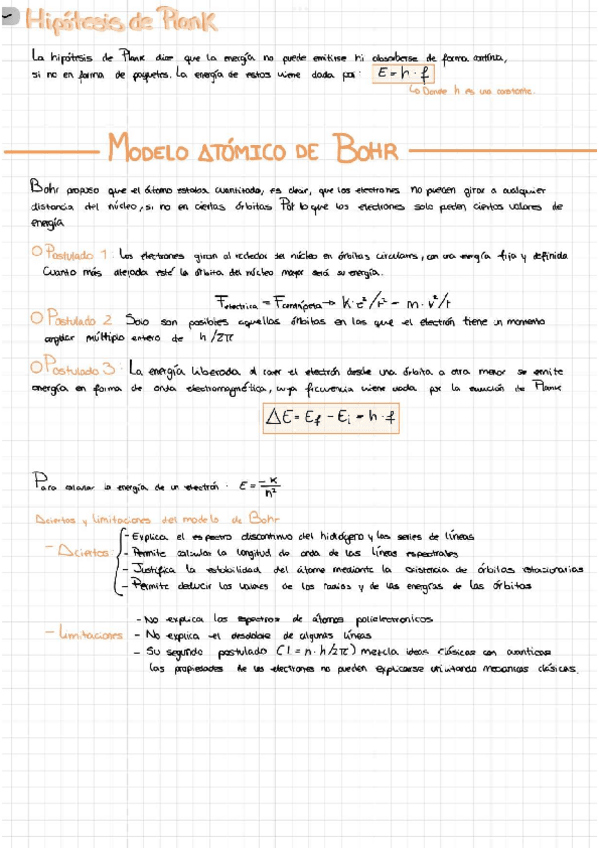 Hipótesis de Plank
La hipótesis de Plank dice que la energía no puede emitirse ni absorberse de forma continua,
si no en forma de paquetes. La energía de estos viene dada por: E = h · f
↳ Donde h es una constante.
MODELO ATÓMICO DE BOHR
Bohr propuso que el átomo estaba cuantizado, es decir, que los electrones no pueden girar a cualquier
distancia del núcleo, si no en ciertas órbitas. Por lo que los electrones solo pueden ciertos valores de
energía
Postulado 1: Los electrones giran al rededor del núcleo en órbitas circulares, con una energía fija y definida
Cuanto más alejada esté la órbita del núcleo mayor será su energía.
Felectrica = Fcentrípeta → K·e²/r² = m·v²/r
Postulado 2 Solo son posibles aquellas órbitas en las que el electrón tiene un momento
angular múltiplo entero de h/2π
Postulado 3: La energía liberada al caer el electrón desde una órbita a otra menor se emite
energía en forma de onda electromagnética, cuya frecuencia viene dada por la ecuación de Plank
ΔE = Ef - Ei = h · f
Para calcular la energía de un electrón: E = -K/n²
Aciertos y limitaciones del modelo de Bohr
- Aciertos:
- Explica el espectro discontinuo del hidrógeno y las series de líneas
- Permite calcular la longitud de onda de las líneas espectrales
- Justifica la estabilidad del átomo mediante la existencia de órbitas estacionarias
- Permite deducir los valores de los radios y de las energías de las órbitas
- Limitaciones
- No explica los espectros de átomos polielectronicos
- No explica el desdoble de algunas líneas
- Su segundo postulado (l = n · h/2π) mezcla ideas clásicas con cuanticas
las propiedades de los electrones no pueden explicarse utilizando mecanicas clásicas.